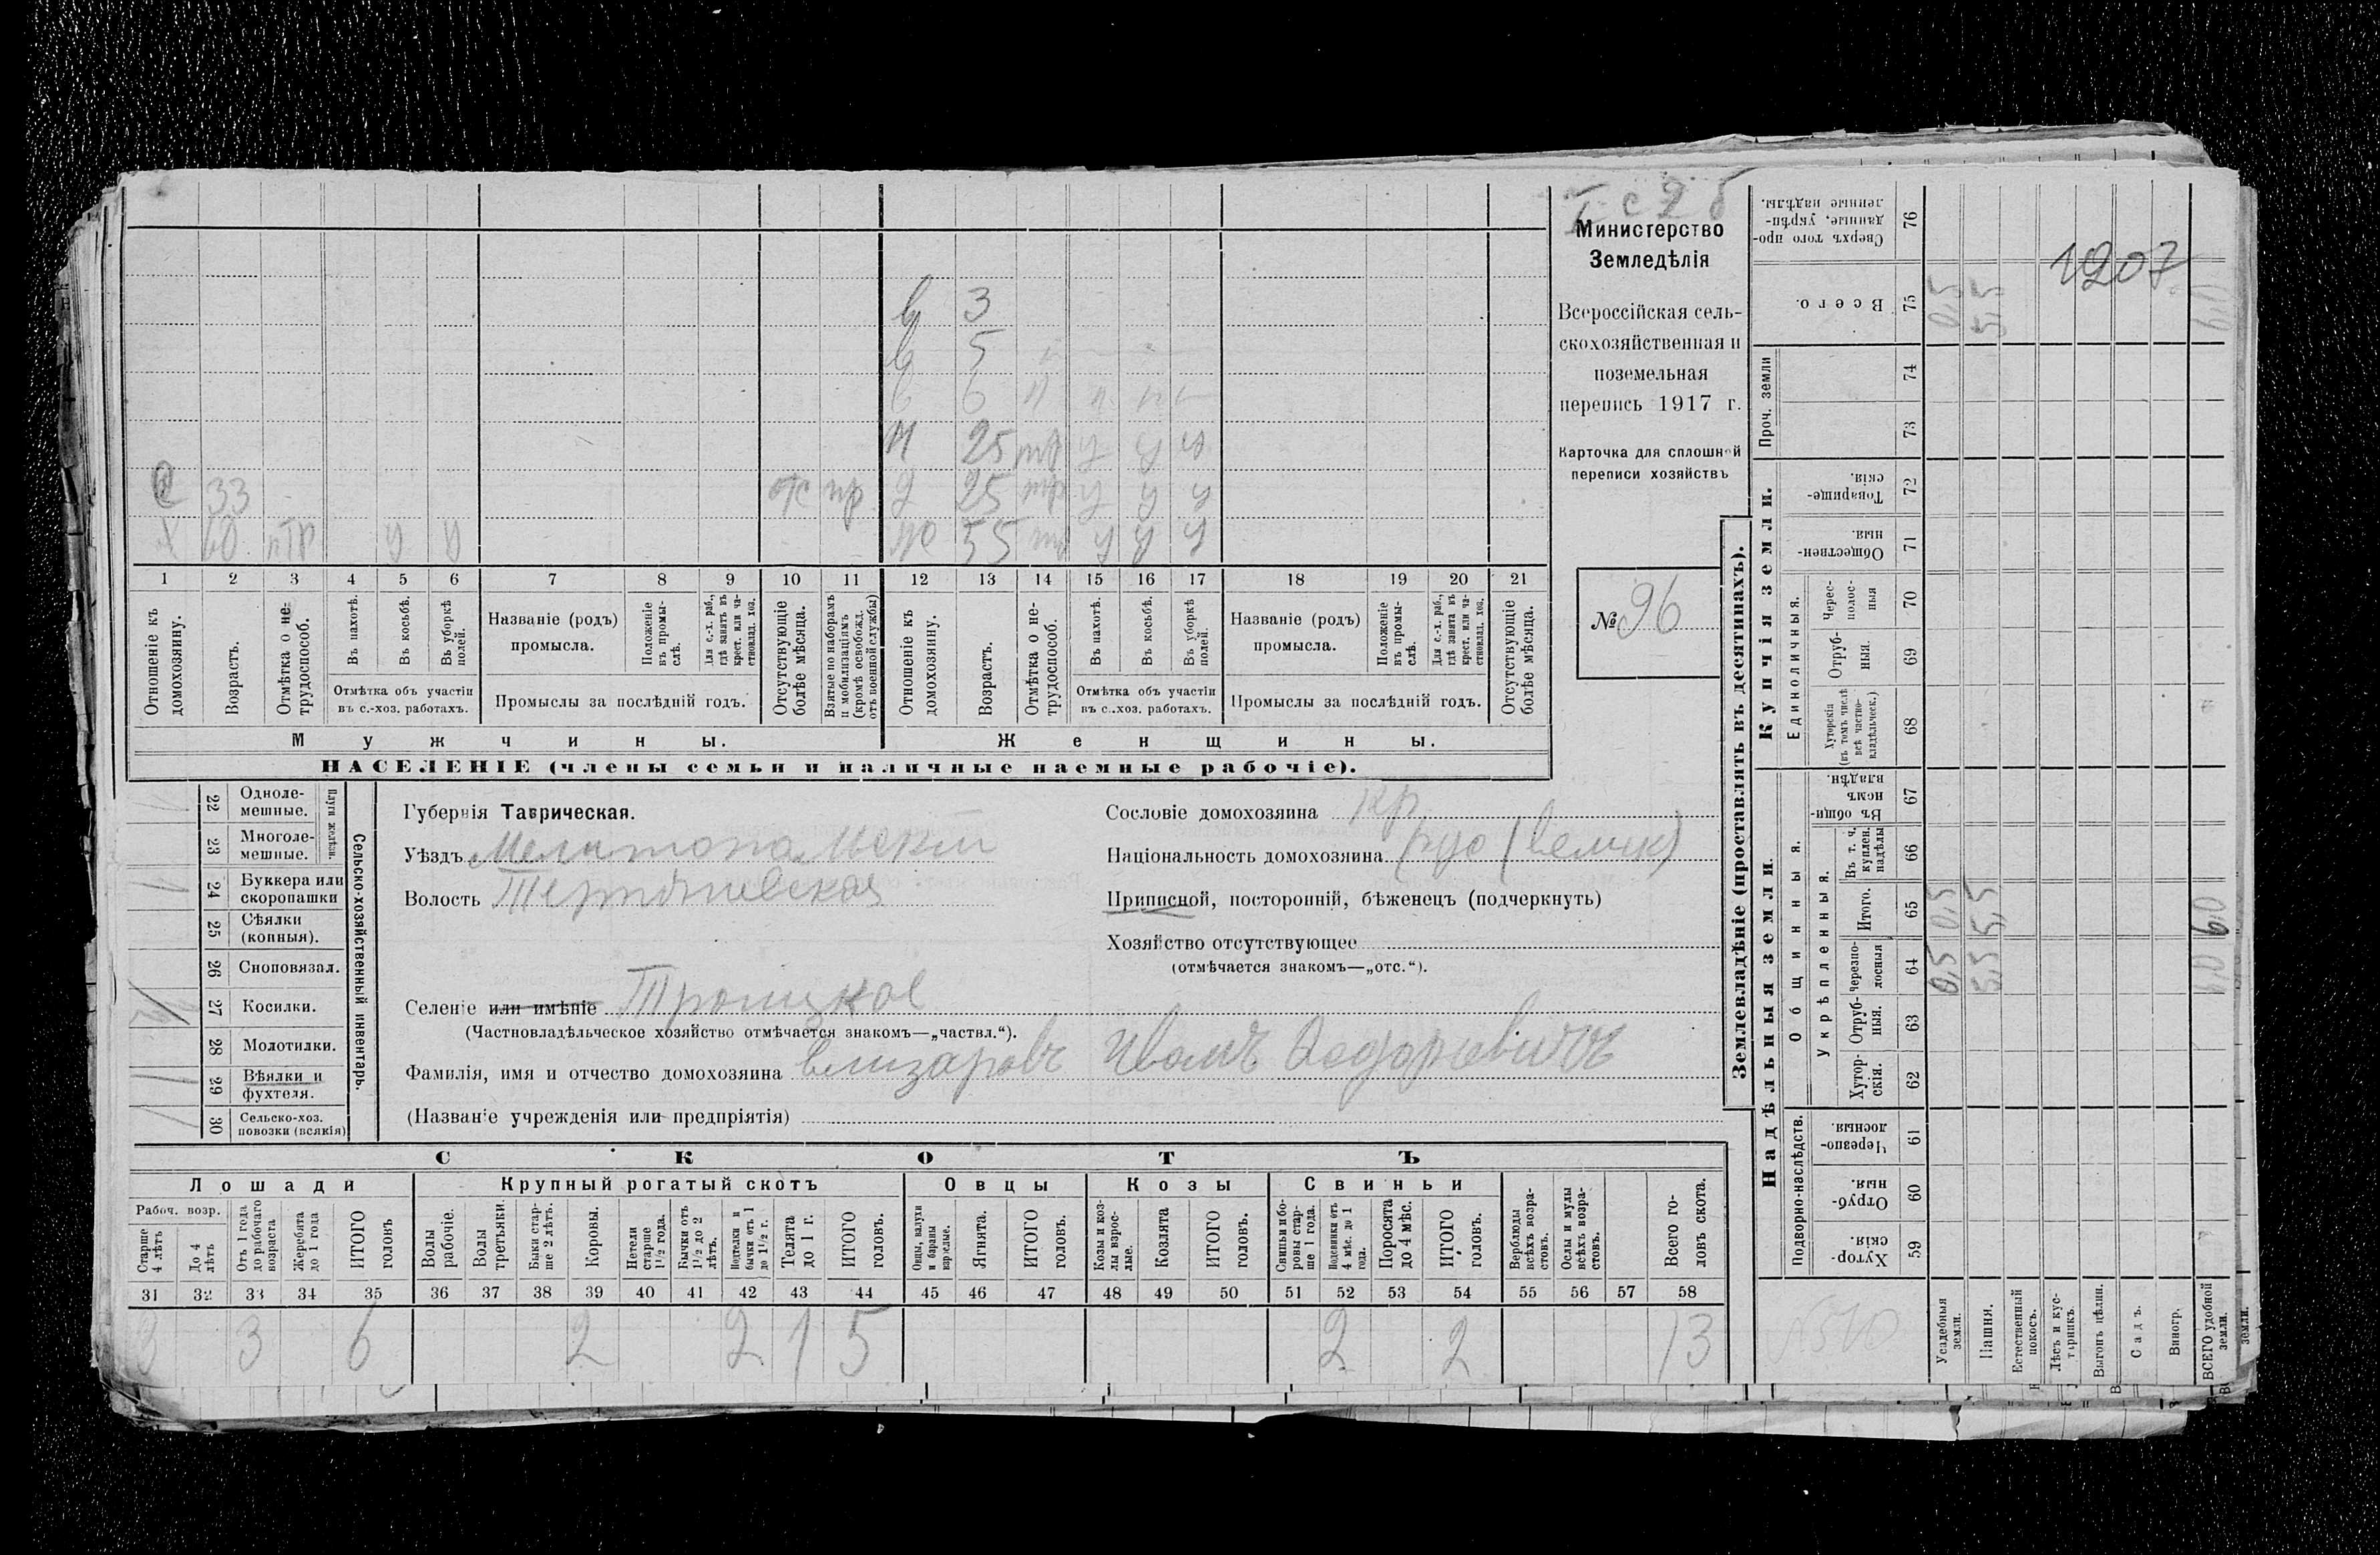 Министерство
Земледѣлія
Всероссійская сель-
скохозяйственная и
поземельная
перепись 1917 г.
Карточка для сплошной
переписи хозяйствъ
№ 96
1207
в 3
в 5
в 6
25 тр у у у
с 33 пр д 25 тр у у у
х 60 у у ж 55 у у у
1 2 3 4 5 6 7 8 9 10 11 12 13 14 15 16 17 18 19 20 21
Отношеніе къ домохозяину.
Возрастъ.
Отмѣтка о не-трудоспособ.
Въ пахотѣ.
Въ косьбѣ.
Въ уборкѣ полей.
Отмѣтка объ участіи въ с.-хоз. работахъ.
Названіе (родъ) промысла.
Положеніе въ промы-слѣ.
Для с.-х. раб., гдѣ занятъ въ крест. или ча-стновлад. хоз.
Промыслы за послѣдній годъ.
Отсутствующіе болѣе мѣсяца.
Взятые по наборамъ и мобилизаціямъ (кромѣ освобожд. отъ военной службы)
Отношеніе къ домохозяину.
Возрастъ.
Отмѣтка о не-трудоспособ.
Въ пахотѣ.
Въ косьбѣ.
Въ уборкѣ полей.
Отмѣтка объ участіи въ с.-хоз. работахъ.
Названіе (родъ) промысла.
Положеніе въ промы-слѣ.
Для с.-х. раб., гдѣ занята въ крест. или ча-стновлад. хоз.
Промыслы за послѣдній годъ.
Отсутствующіе болѣе мѣсяца.
Мужчины. Женщины.
НАСЕЛЕНІЕ (члены семьи и наличные наемные рабочіе).
Сельско-хозяйственный инвентарь.
Плуги желѣзн.
22 Одноле-мешные.
23 Многоле-мешные.
24 Буккера или скоропашки
25 Сѣялки (конныя).
26 Сноповязал.
27 Косилки.
28 Молотилки.
29 Вѣялки и фухтеля.
30 Сельско-хоз. повозки (всякія)
Губернія Таврическая.
Уѣздъ Мелитопольскій
Волость
Селеніе или имѣніе Троицкое
(Частновладѣльческое хозяйство отмѣчается знакомъ—„частвл.“).
Фамилія, имя и отчество домохозяина Елизаровъ Иванъ Федоровичъ
(Названіе учрежденія или предпріятія)
Сословіе домохозяина кр.
Національность домохозяина рус (велик)
Приписной, посторонній, бѣженецъ (подчеркнуть)
Хозяйство отсутствующее
(отмѣчается знакомъ—„отс.“).
СКОТЪ
Лошади Крупный рогатый скотъ Овцы Козы Свиньи
Рабоч. возр.
Старше 4 лѣтъ
До 4 лѣтъ
Отъ 1 года до рабочаго возраста
Жеребята до 1 года
ИТОГО головъ
Волы рабочіе.
Волы третьяки.
Быки стар-ше 2 лѣтъ.
Коровы.
Нетели старше 1½ года.
Бычки отъ 1½ до 2 лѣтъ.
Подтелки и бычки отъ 1 до 1½ г.
Телята до 1 г.
ИТОГО головъ.
Овцы, валухи и бараны взрослые.
Ягнята.
ИТОГО головъ.
Козы и коз-лы взрос-лые.
Козлята
ИТОГО головъ.
Свиньи и бо-ровы стар-ше 1 года.
Подсвинки отъ 4 мѣс. до 1 года.
Поросята до 4 мѣс.
ИТОГО головъ.
Верблюды всѣхъ возра-стовъ.
Ослы и мулы всѣхъ возра-стовъ.
Всего го-ловъ скота.
31 32 33 34 35 36 37 38 39 40 41 42 43 44 45 46 47 48 49 50 51 52 53 54 55 56 57 58
3 3 6 2 2 1 5 2 2 13
Землевладѣніе (проставлять въ десятинахъ).
Надѣльныя земли. Купчія земли. Проч. земли
Подворно-наслѣдств. Общинныя. Единоличныя.
Укрѣпленныя.
Хутор-скія. 59
Отруб-ныя. 60
Черезпо-лосныя 61
Хутор-скія. 62
Отруб-ныя. 63
Черезпо-лосныя 64
Итого. 65
Въ т. ч. куплен. надѣлы 66
Въ общин-номъ владѣн. 67
Хуторскія (въ томъ числѣ всѣ частно-владѣльческ.) 68
Отруб-ныя. 69
Черес-полос-ныя 70
Обществен-ныя 71
Товарище-скія. 72
73
74
Всего. 75
Сверхъ того про-данные, укрѣп-ленные надѣлы. 76
Усадебныя земли. 0,5 0,5 0,5
Пашня. 5,5 5,5 5,5
Естественный покосъ.
Лѣсъ и кус-тарникъ.
Выгонъ цѣлин.
Садъ.
Виногр.
ВСЕГО удобной земли. 6,0 6,0 6,0
земли.